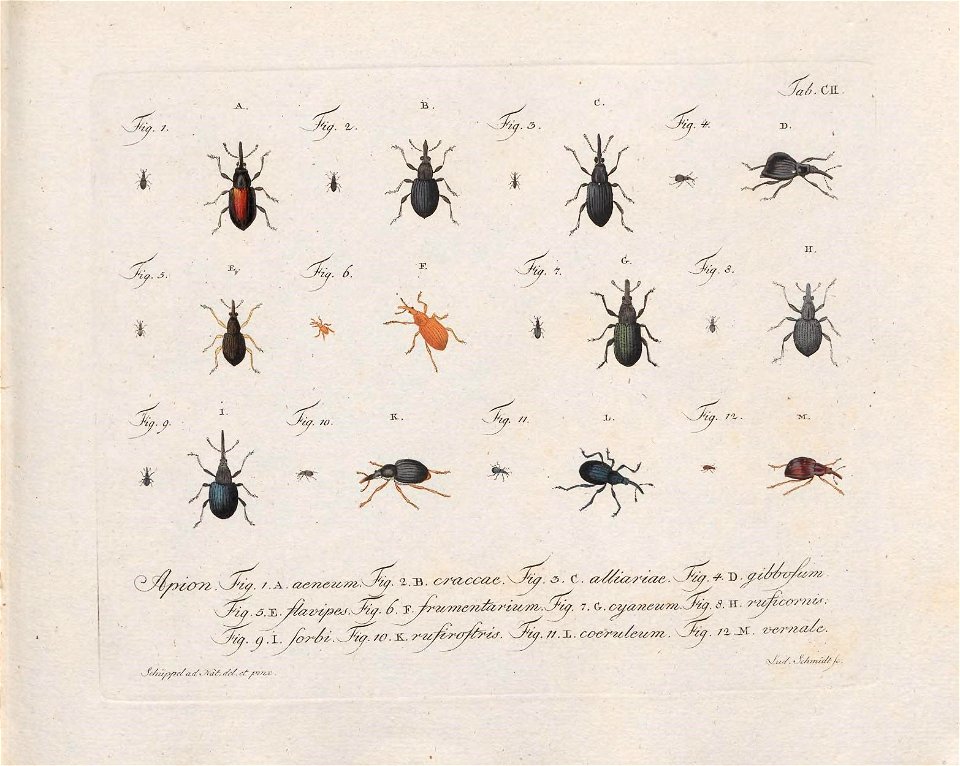 Tab. CII.
A. B. C.
Fig. 1. Fig. 2. Fig. 3. Fig. 4. D.
E. F. G. H.
Fig. 5. Fig. 6. Fig. 7. Fig. 8.
I. K. L. M.
Fig. 9. Fig. 10. Fig. 11. Fig. 12.
Apion. Fig. 1. A. aeneum. Fig. 2. B. craccae. Fig. 3. C. alliariae. Fig. 4. D. gibboſum.
Fig. 5. E. flavipes. Fig. 6. F. frumentarium. Fig. 7. G. cyaneum. Fig. 8. H. ruficornis.
Fig. 9. I. ſorbi. Fig. 10. K. rufiroſtris. Fig. 11. L. coeruleum. Fig. 12. M. vernale.
Schüppel ad Nat. del. et pinx. Lud. Schmidt ſc.